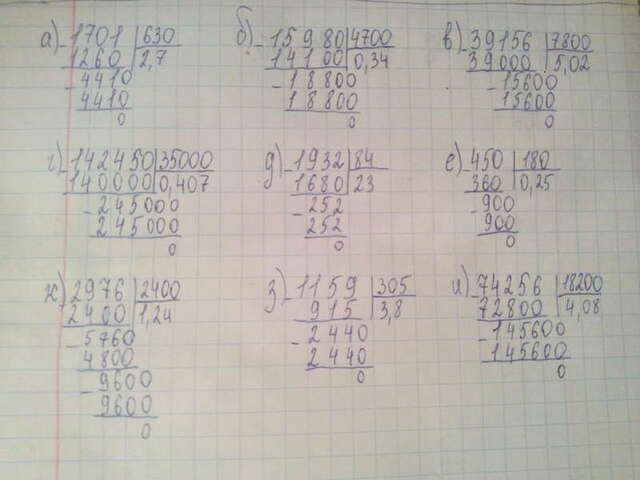 а) 1701 | 630
1260 | 2,7
4410
4410
0
б) 15980 | 4700
14100 | 0,34
18800
18800
0
в) 39156 | 7800
39000 | 5,02
15600
15600
0
г) 142450 | 35000
140000 | 0,407
245000
245000
0
д) 1932 | 84
1680 | 23
252
252
0
е) 450 | 180
360 | 0,25
900
900
0
ж) 2976 | 2400
2400 | 1,24
5760
4800
9600
9600
0
з) 1159 | 305
915 | 3,8
2440
2440
0
и) 74256 | 18200
72800 | 4,08
145600
145600
0